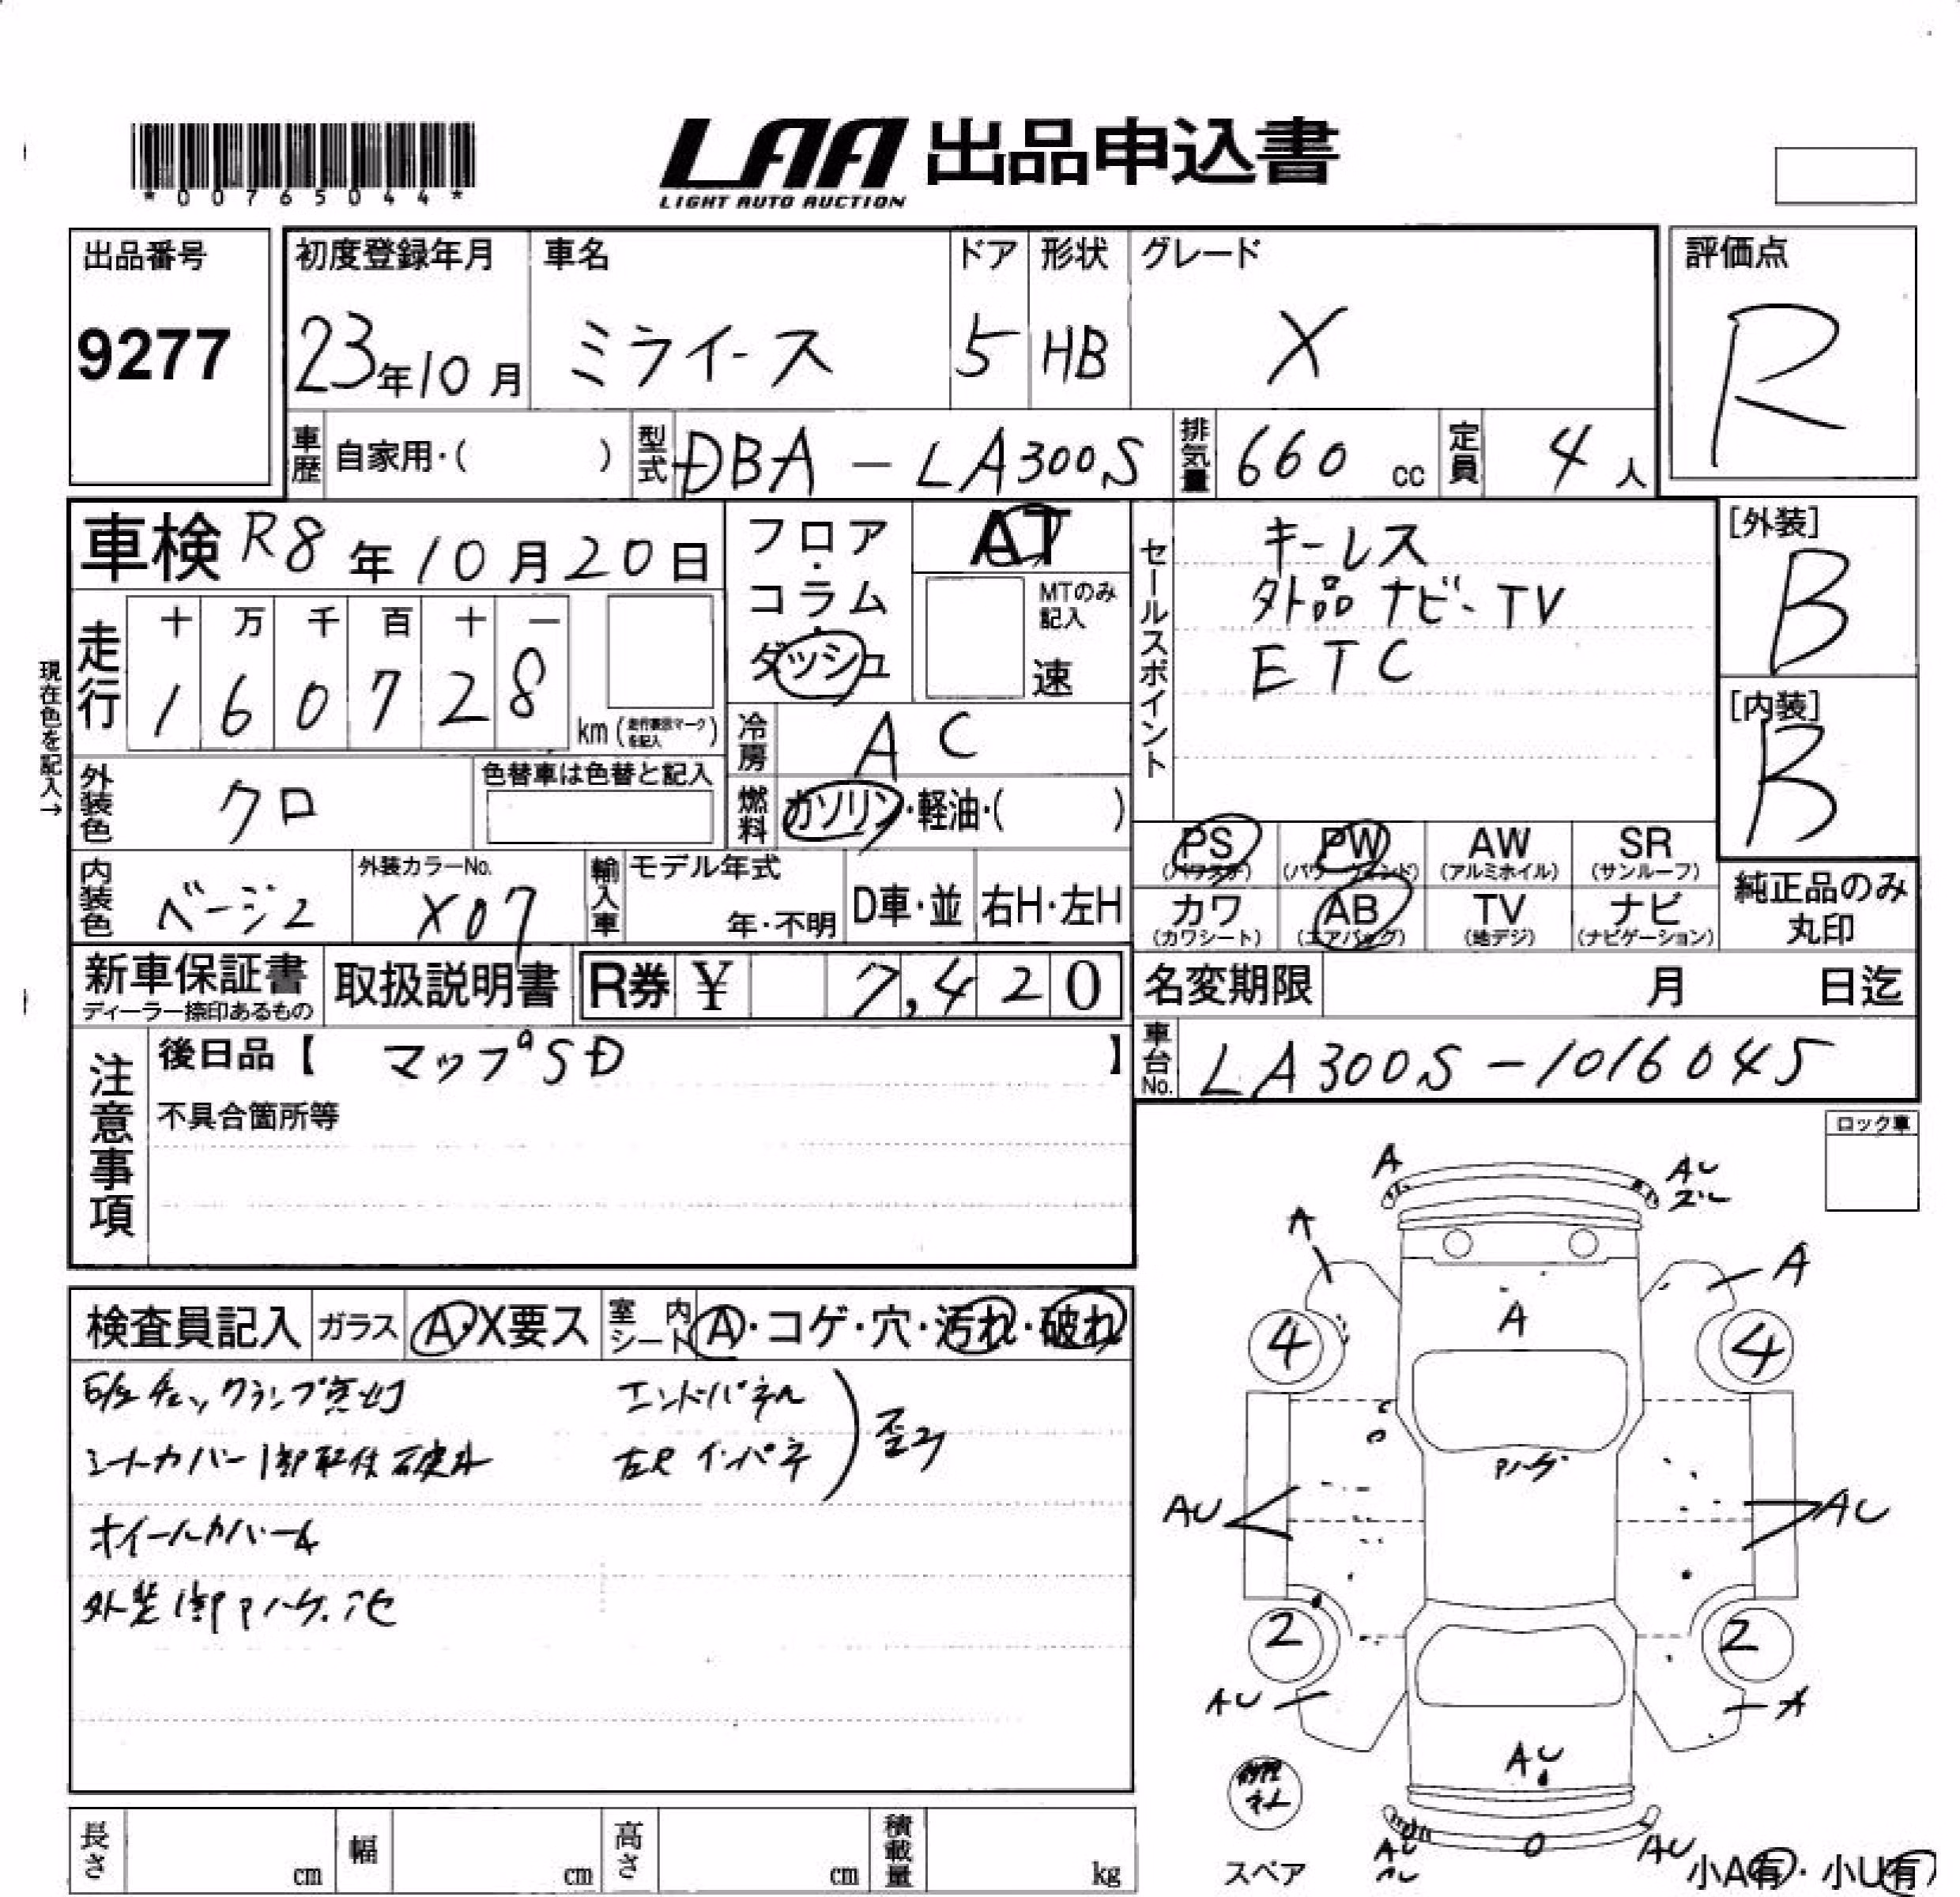 *00765044*
LAA 出品申込書
LIGHT AUTO AUCTION
出品番号
9277
初度登録年月
23年10月
車名
ミライース
ドア
5
形状
HB
グレード
X
評価点
R
車歴 自家用・( )
型式 DBA-LA300S
排気量 660 cc
定員 4人
車検 R8年10月20日
フロア・コラム・ダッシュ
AT
MTのみ記入
速
セールスポイント
キーレス
外品ナビ・TV
ETC
[外装]
B
[内装]
B
現在色を記入→
走行
十 万 千 百 十 一
1 6 0 7 2 8
km (走行表示マークを記入)
冷房 AC
外装色 クロ
色替車は色替と記入
燃料 ガソリン・軽油・( )
PS (パワステ)
PW (パワーウィンド)
AW (アルミホイル)
SR (サンルーフ)
カワ (カワシート)
AB (エアバッグ)
TV (地デジ)
ナビ (ナビゲーション)
純正品のみ丸印
内装色 ベージ2
外装カラーNo.
X07
輸入車
モデル年式
年・不明
D車・並
右H・左H
新車保証書
ディーラー捺印あるもの
取扱説明書
R券 ¥ 7,420
名変期限 月 日迄
注意事項
後日品【 マップSD 】
不具合箇所等
車台No. LA300S-1016045
ロック車
検査員記入
ガラス A・X要ス
室内シート A・コゲ・穴・汚れ・破れ
チェックランプ点灯
シートカバー 破れ
エンドパネル
左R インパネ
歪み
ホイールカバーA
外装
A
AU
A
A
A
4
4
AU
AU
2
2
AU
A
AU
AU
AU
スペア
小A有・小U有
長さ cm
幅 cm
高さ cm
積載量 kg